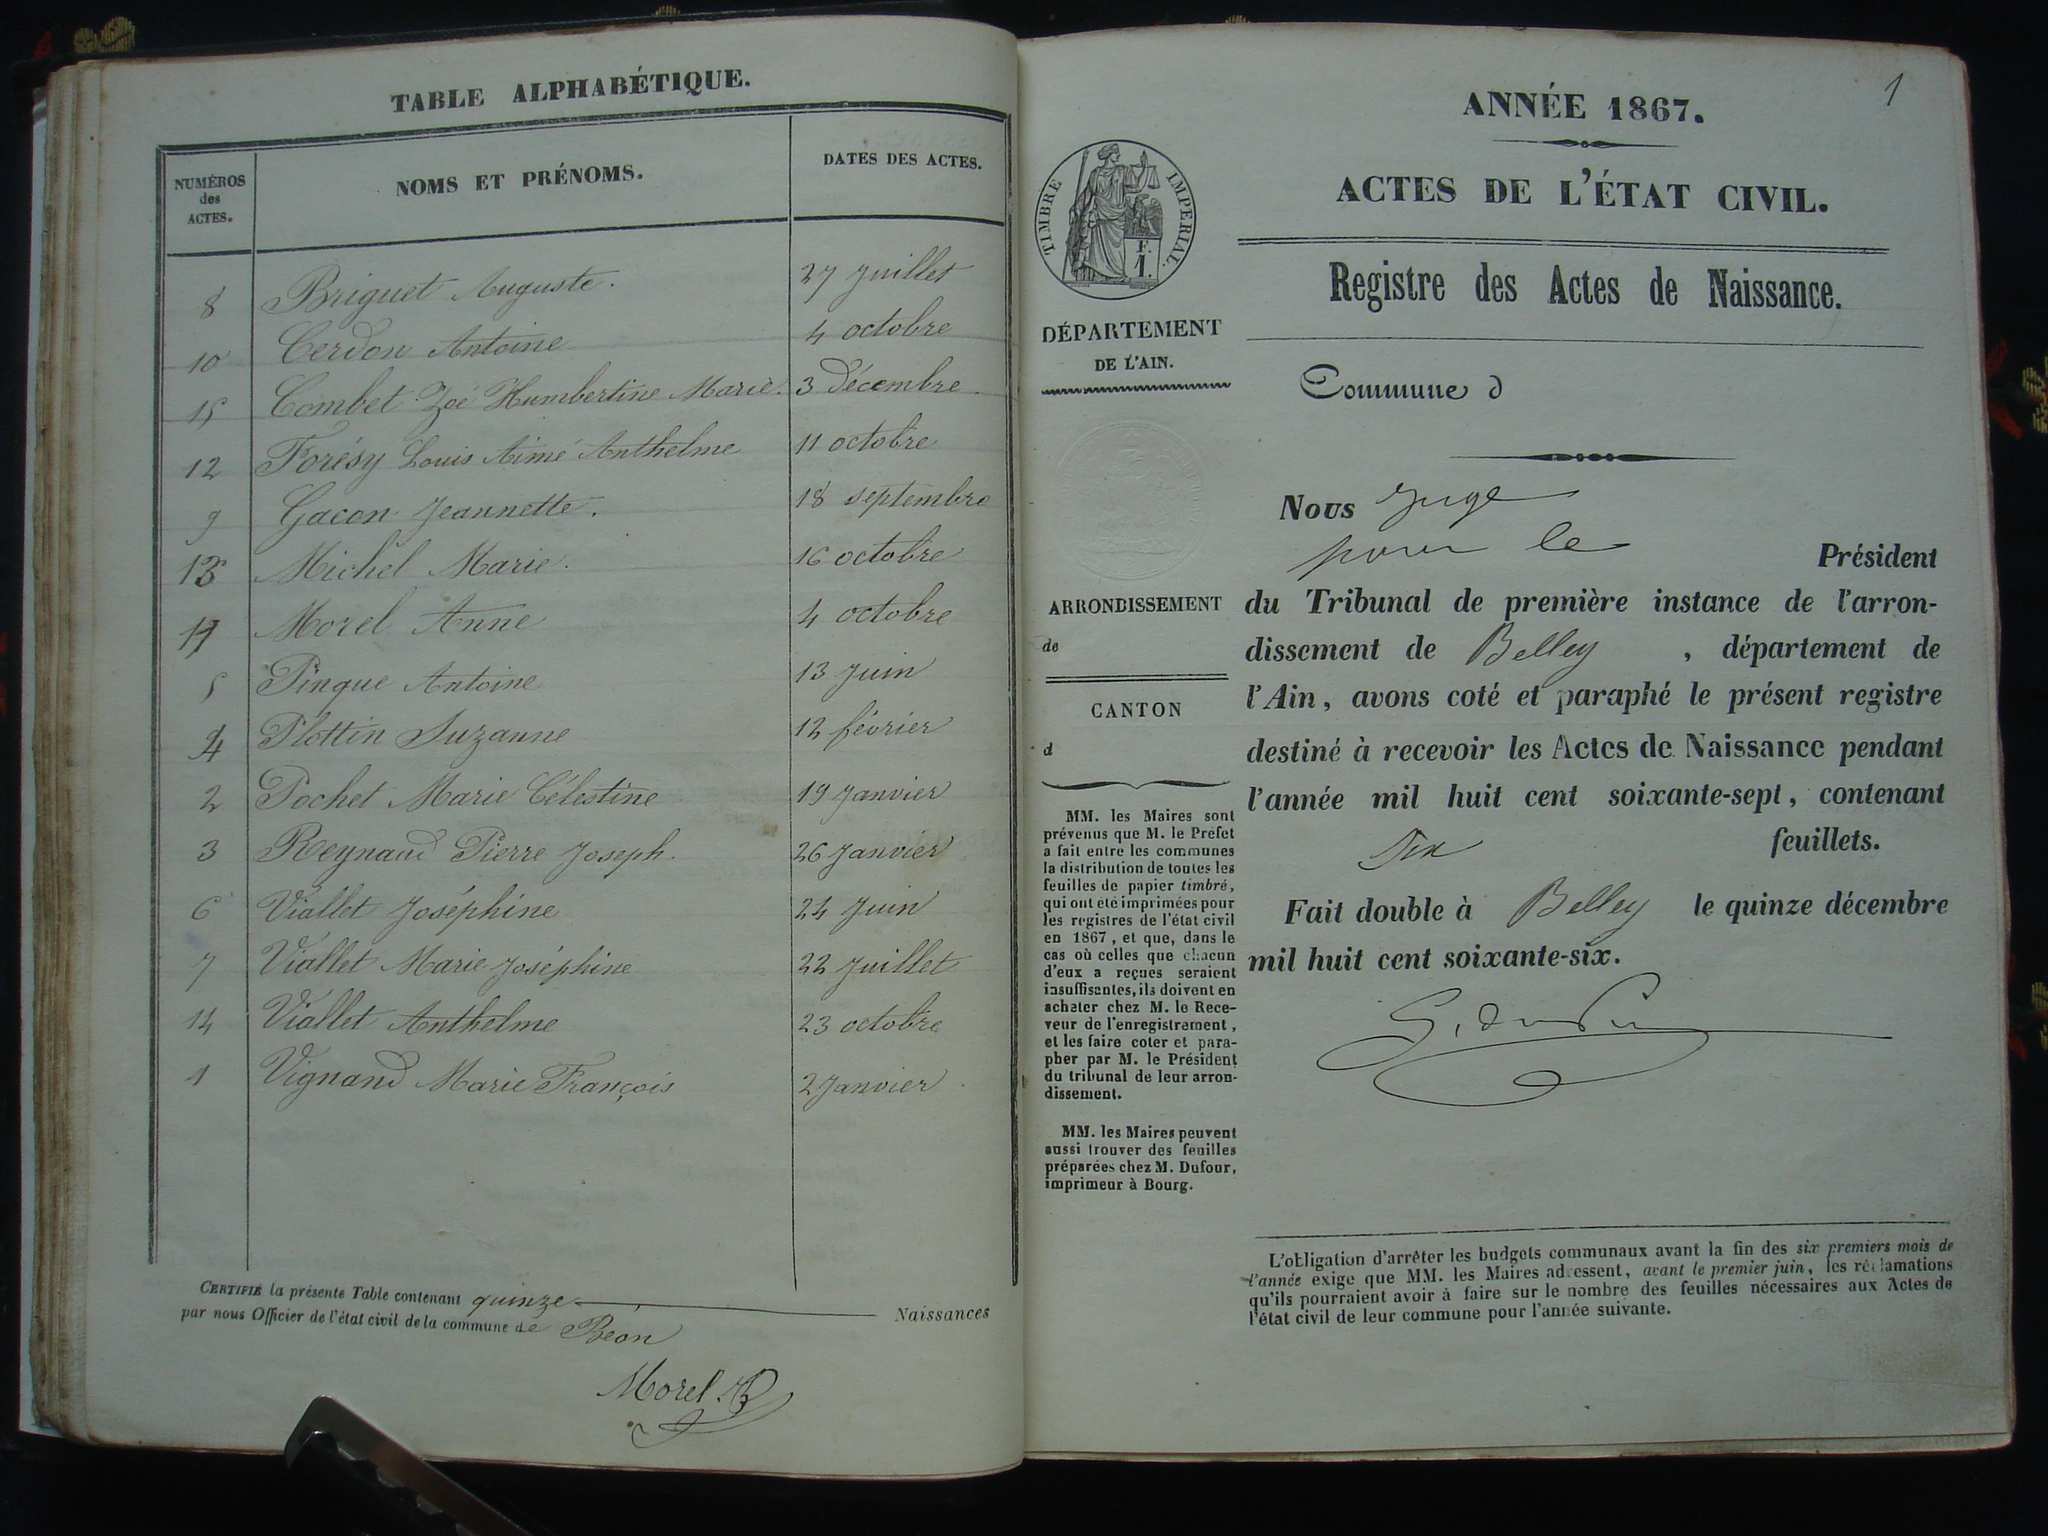 TABLE ALPHABÉTIQUE.
NUMÉROS des ACTES. NOMS ET PRÉNOMS. DATES DES ACTES.
8 Briguet Auguste. 27 Juillet
10 Cerdon Antoine 4 octobre
15 Combet Zoé Humbertine Marie. 3 décembre
12 Forésy Louis Aimé Anthelme 11 octobre
9 Gacon Jeannette. 18 septembre
13 Michel Marie. 16 octobre
11 Morel Anne 4 octobre
5 Pinque Antoine 13 Juin
4 Plottin Suzanne 12 février
2 Pochet Marie Célestine 19 Janvier
3 Reynaud Pierre Joseph. 26 Janvier
6 Viallet Joséphine 24 Juin
7 Viallet Marie Joséphine 22 Juillet
14 Viallet Anthelme 23 octobre
1 Vignand Marie François 2 Janvier
CERTIFIÉ la présente Table contenant quinze Naissances
par nous Officier de l'état civil de la commune de Béon
Morel
1
ANNÉE 1867.
ACTES DE L'ÉTAT CIVIL.
TIMBRE IMPERIAL.
F.
1.
Registre des Actes de Naissance.
DÉPARTEMENT
DE L'AIN.
Commune d
Nous Juge
pour le Président
du Tribunal de première instance de l'arron-
dissement de Belley, département de
l'Ain, avons coté et paraphé le présent registre
destiné à recevoir les Actes de Naissance pendant
l'année mil huit cent soixante-sept, contenant
Six feuillets.
Fait double à Belley le quinze décembre
mil huit cent soixante-six.
ARRONDISSEMENT
de
CANTON
d
MM. les Maires sont
prévenus que M. le Préfet
a fait entre les communes
la distribution de toutes les
feuilles de papier timbré,
qui ont été imprimées pour
les registres de l'état civil
en 1867, et que, dans le
cas où celles que chacun
d'eux a reçues seraient
insuffisantes, ils doivent en
acheter chez M. le Rece-
veur de l'enregistrement,
et les faire coter et para-
pher par M. le Président
du tribunal de leur arron-
dissement.
MM. les Maires peuvent
aussi trouver des feuilles
préparées chez M. Dufour,
imprimeur à Bourg.
L'obligation d'arrêter les budgets communaux avant la fin des six premiers mois de
l'année exige que MM. les Maires adressent, avant le premier juin, les réclamations
qu'ils pourraient avoir à faire sur le nombre des feuilles nécessaires aux Actes de
l'état civil de leur commune pour l'année suivante.